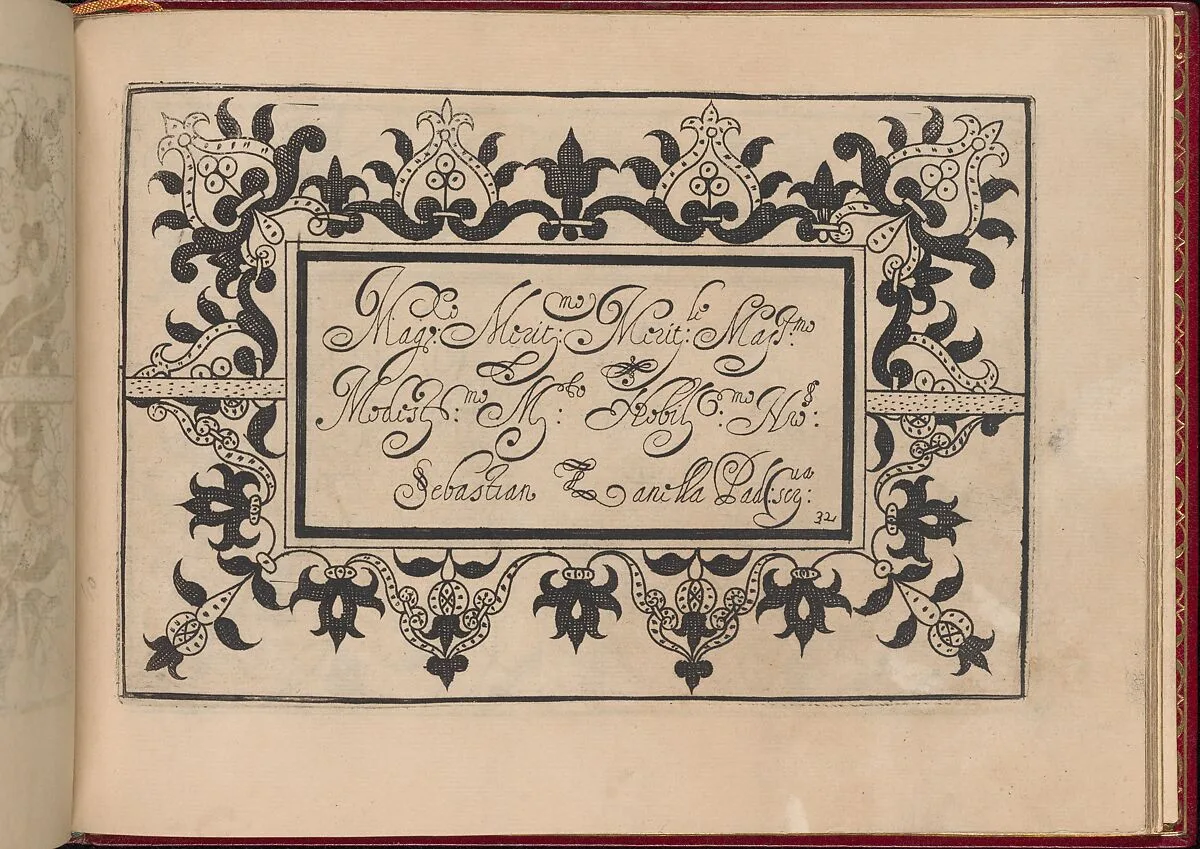 Mag:co Merit:mo Merit:le Mag:tmo
Modest:mo M:to Nobil:mo N:
Sebastian Zanella Pad:
32